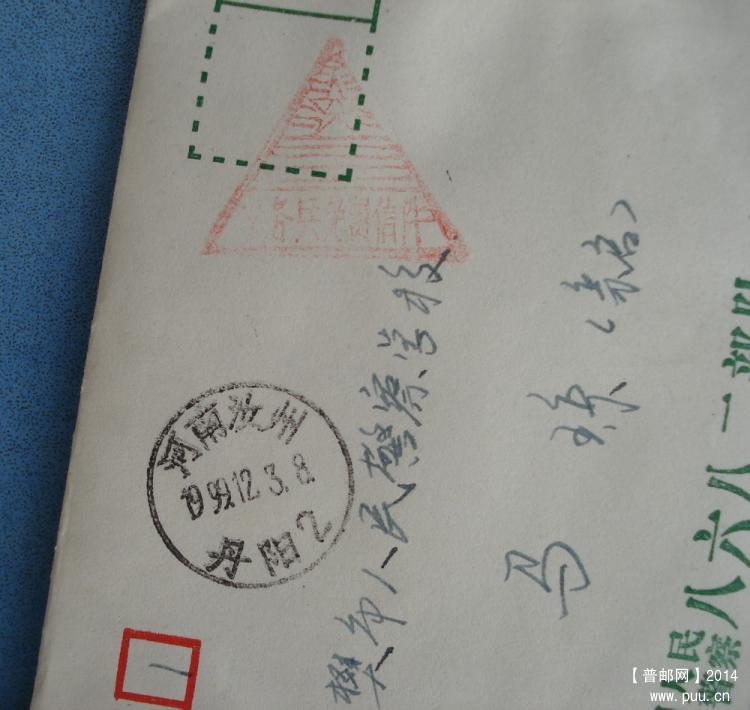 义务兵免费信件
河南汝州
1999.12.3.8
丹阳2
1
樊市人民警察学校
马
八六八一部队
【普邮网】2014
www.puu.cn